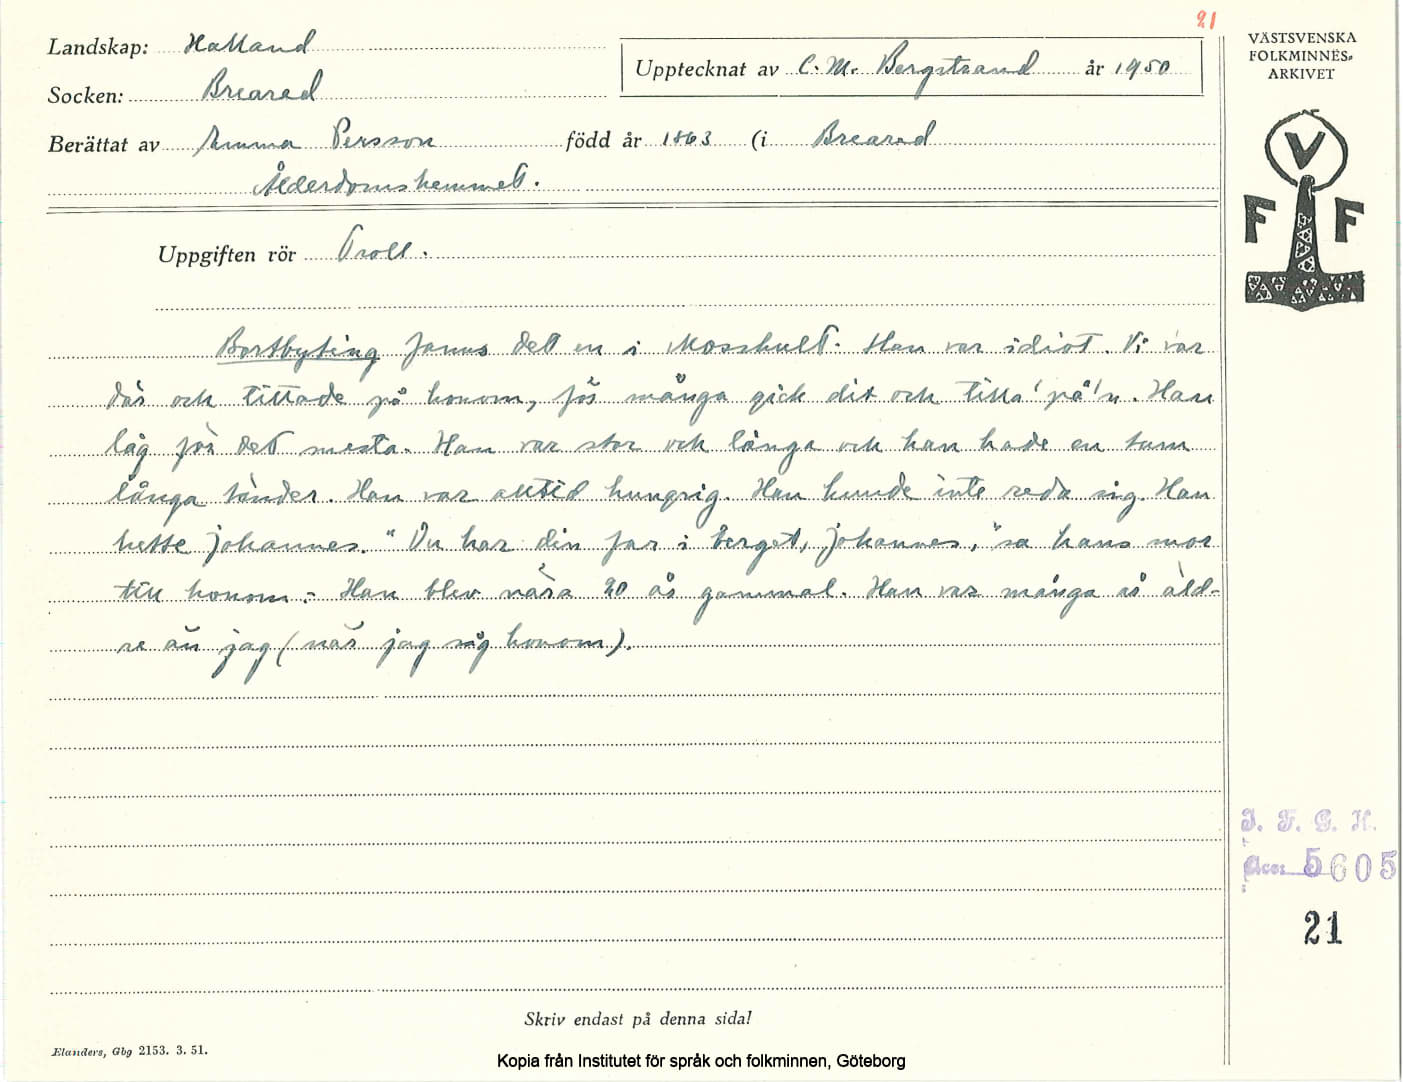 21
Landskap: Halland
Socken: Breared
Upptecknat av C. M. Bergstrand år 1950
Berättat av Emma Persson född år 1863 (i Breared
Ålderdomshemmet.
VÄSTSVENSKA
FOLKMINNES-
ARKIVET
V
F F
Uppgiften rör Troll.
Bortbyting fanns det en i Mosshult. Han var idiot. Vi var
där och tittade på honom, för många gick dit och titta' på'n. Han
låg för det mesta. Han var stor och långa och han hade en tum
långa tänder. Han var alltid hungrig. Han kunde inte reda sig. Han
hette Johannes. "Du har din far i berget, Johannes," sa hans mor
till honom. Han blev nära 20 år gammal. Han var många år äld-
re än jag (när jag såg honom).
I. F. G. H.
Acc: 5605
21
Skriv endast på denna sida!
Elanders, Gbg 2153. 3. 51.
Kopia från Institutet för språk och folkminnen, Göteborg